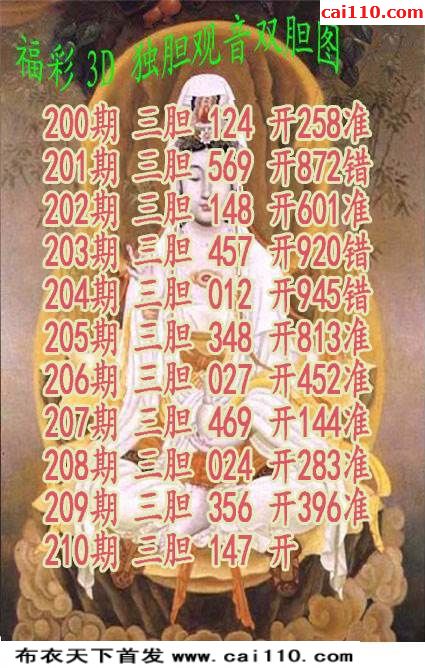 cai110.com
福彩 3D 独胆观音双胆图
200期 三胆 124 开258准
201期 三胆 569 开872错
202期 三胆 148 开601准
203期 三胆 457 开920错
204期 三胆 012 开945错
205期 三胆 348 开813准
206期 三胆 027 开452准
207期 三胆 469 开144准
208期 三胆 024 开283准
209期 三胆 356 开396准
210期 三胆 147 开
布衣天下首发 www.cai110.com